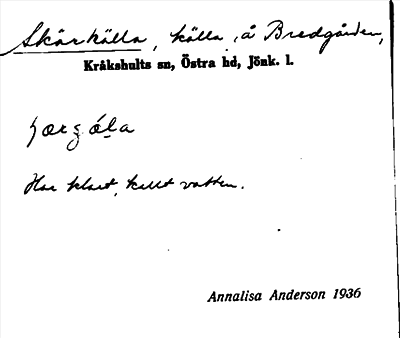 Skärkälla, källa, å Bredgården,
Kråkshults sn, Östra hd, Jönk. l.
Har klart, kallt vatten.
Annalisa Anderson 1936